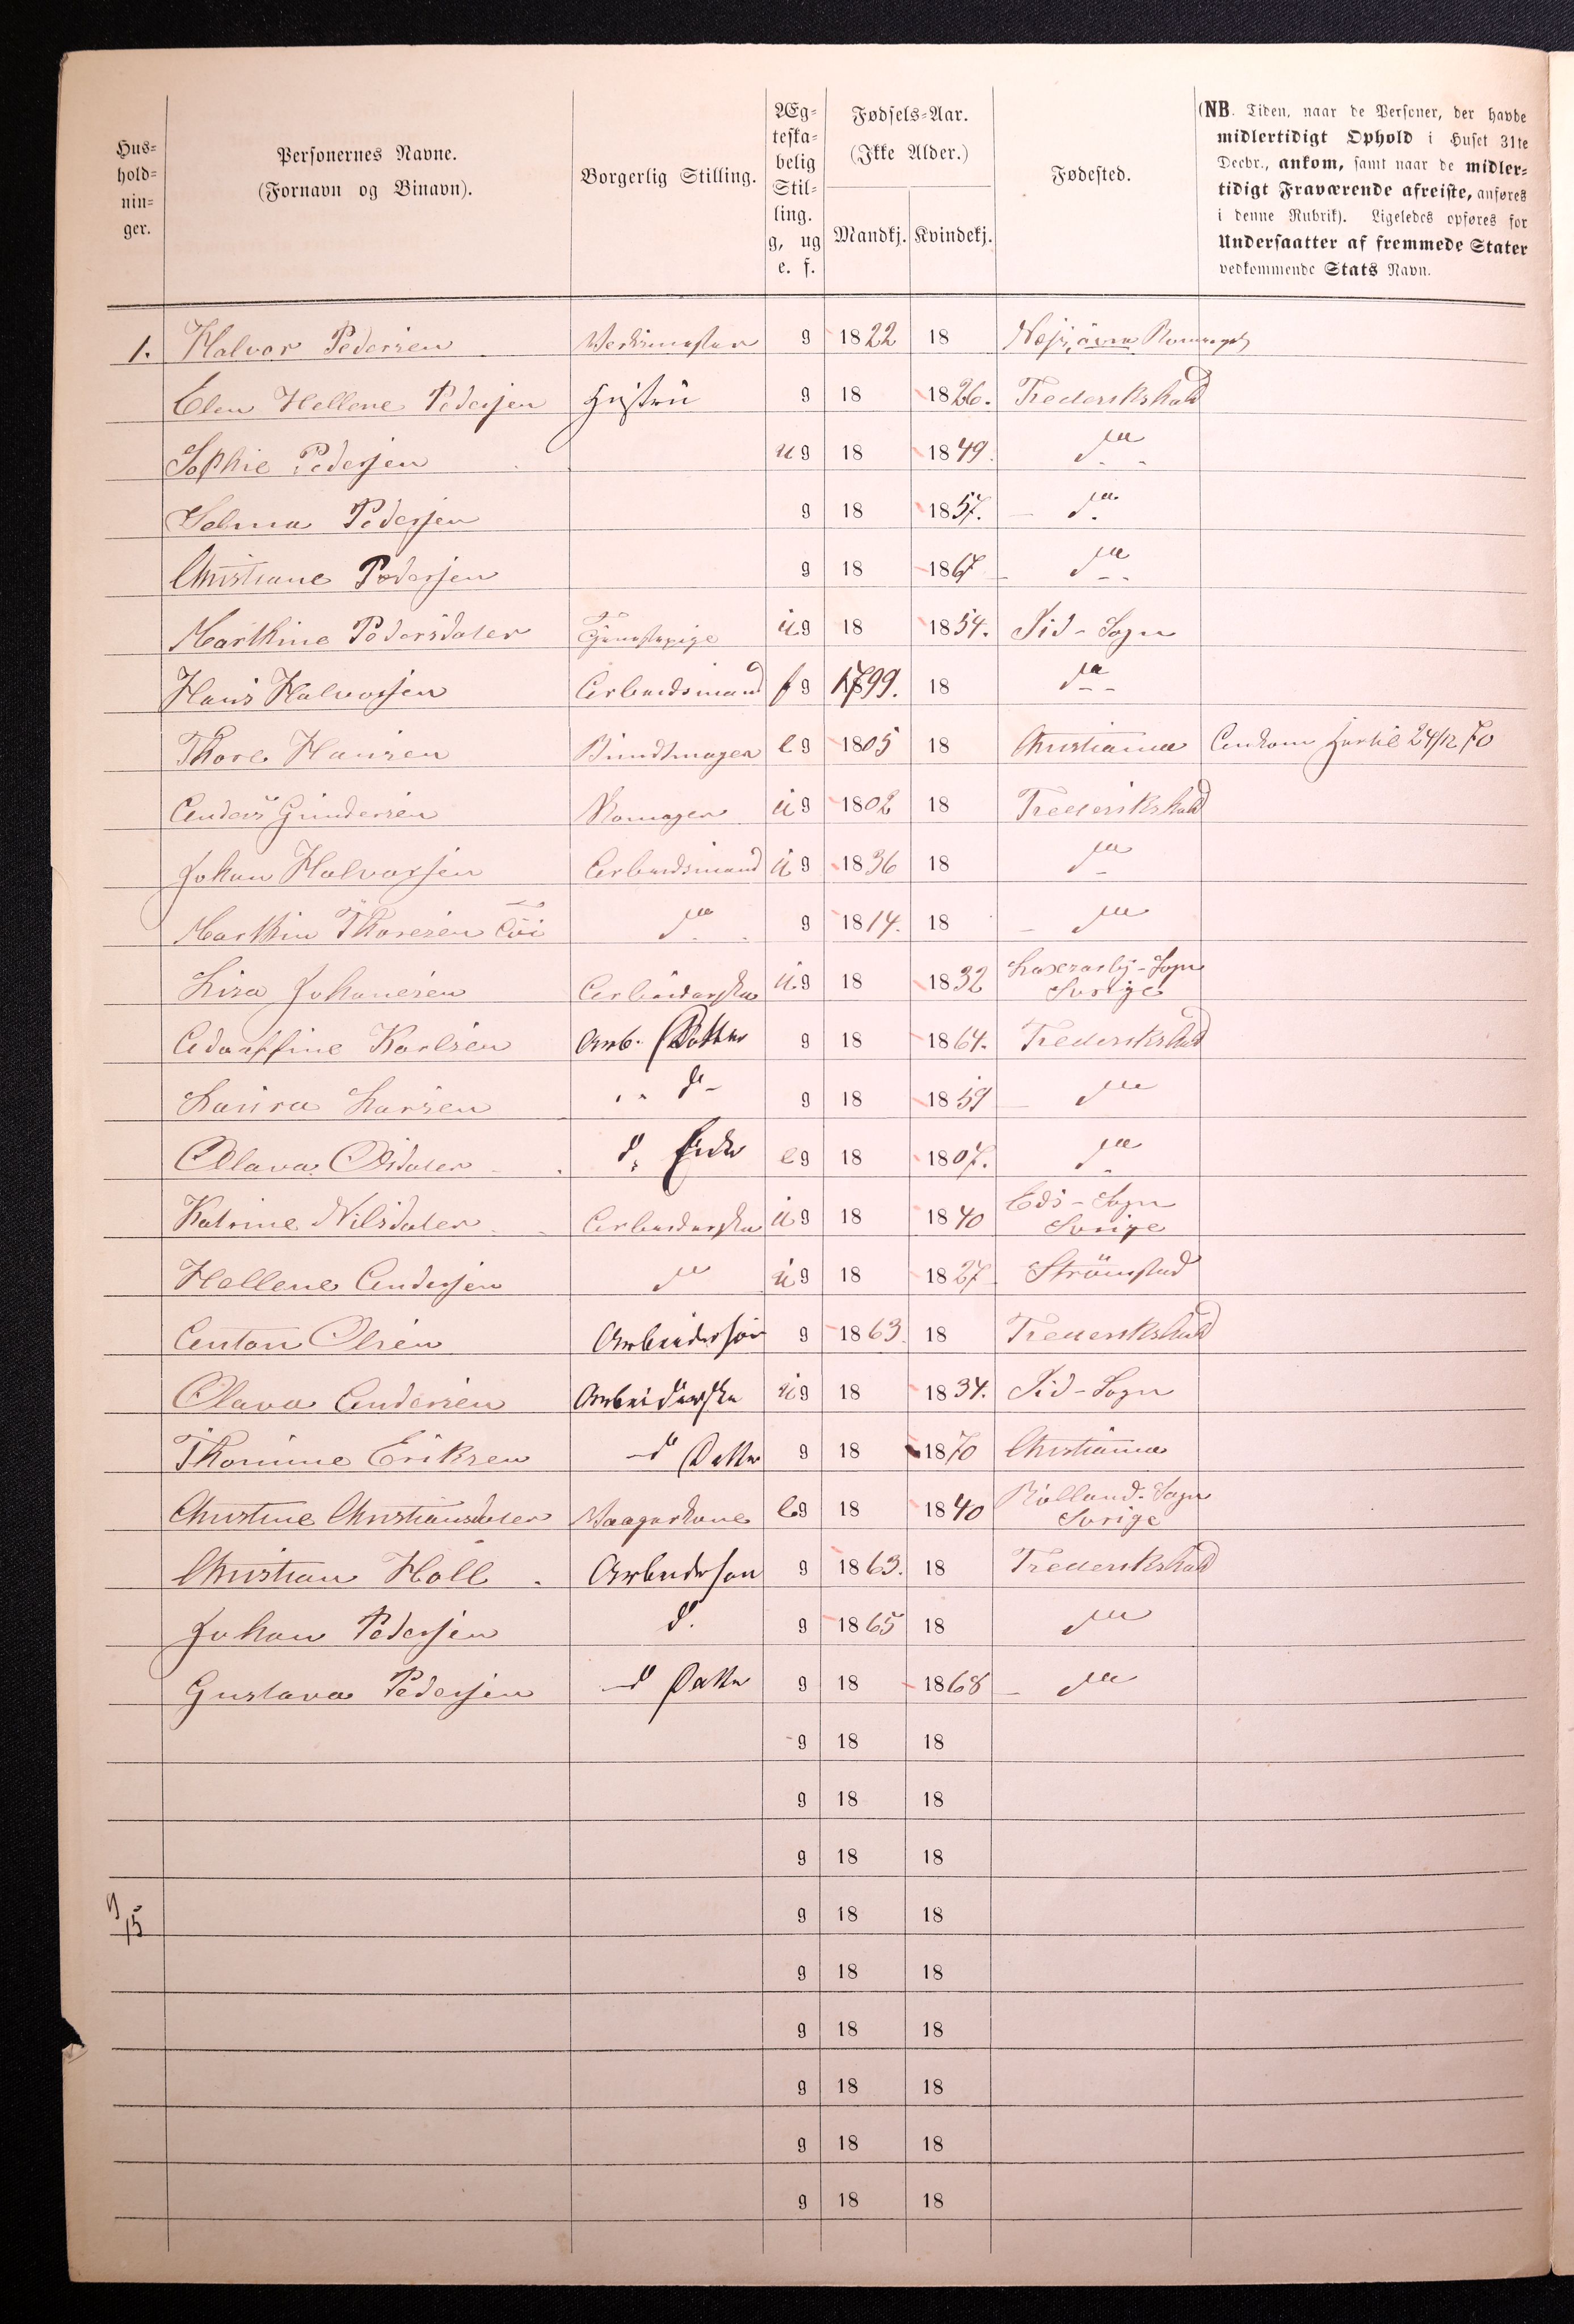 Hus-
hold-
nin-
ger.
Personernes Navne.
(Fornavn og Binavn).
Borgerlig Stilling.
Æg-
teska-
belig
Stil-
ling.
g, ug
e. f.
Fødsels-Aar.
(Ikke Alder.)
Mandkj. Kvindekj.
Fødested.
(NB. Tiden, naar de Personer, der havde
midlertidigt Ophold i Huset 31te
Decbr., ankom, samt naar de midler-
tidigt Fraværende afreiste, anføres
i denne Rubrik). Ligeledes opføres for
Undersaatter af fremmede Stater
vedkommende Stats Navn.
1. Halvor Pedersen g 1822 18
Elen Hellene Pedersen Hustru g 18 1826. Frederikshald
Sophie Pedersen ug 18 1849. do
Selma Pedersen g 18 1857. do
Christiane Pedersen g 18 1867 do
Marthine Pedersdater Tjenestepige ug 18 1854. Id-Sogn
Hans Halvorsen Arbeidsmand f g 1799. 18 do
Thore Hansen Bundtmager eg 1805 18 Christiania Ankom hertil 24/12 70
Anders Gundersen Skomager ug 1802 18 Frederikshald
Johan Halvorsen Arbeidsmand ug 1836 18 do
Marthin Thoresen do g 1814. 18 do
Lisa Johanesen Arbeiderske ug 18 1832 Sogn
Sverige
Adolffine Karlsen Arb. Datter g 18 1864. Frederikshald
Laura Larsen " do g 18 1859 do
Olava Olsdater do Enke eg 18 1807. do
Katrine Nilsdater Arbeiderske ug 18 1840 Eds-Sogn
Sverige
Hellene Andersen do ug 18 1827 Strömstad
Anton Olsen Arbeidersøn g 1863. 18 Frederikshald
Olava Andersen Arbeiderske ug 18 1834. Id-Sogn
Thomine Eriksen do Datter g 18 1870 Christiania
Christine Christiansdater Vaagerkone eg 18 1840 Sogn
Sverige
Christian Holl Arbeidersøn g 1863. 18 Frederikshald
Johan Pedersen do g 1865 18 do
Gustava Pedersen do Datter g 18 1868 do
g 18 18
g 18 18
g 18 18
15 g 18 18
g 18 18
g 18 18
g 18 18
g 18 18
g 18 18